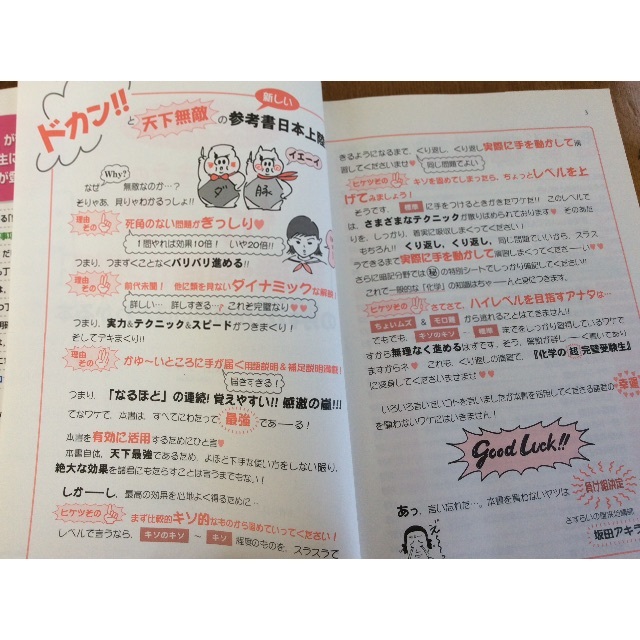 ドカン!!
と 天下無敵 の 新しい 参考書日本上陸
Why?
なぜ 無敵なのか…？
そりゃあ、見りゃわかるっしょ!!
イエーイ
ダ
豚
理由その
死角のない問題がぎっしり♥
1問やれば効果10倍！ いや20倍!!
つまり、つまずくことなくバリバリ進める!!
理由その
前代未聞！ 他に類を見ないダイナミックな解説！
詳しい… 詳しすぎる…？ これぞ完璧なり♥♥
つまり、実力&テクニック&スピードがつきまくり！
そしてデキまくり!!
理由その
かゆ～いところに手が届く用語説明&補足説明満載！
届きすぎる！
つまり、「なるほど」の連続！覚えやすい!! 感激の嵐!!!
てなワケで、本書は、すべてにわたって 最強 であーる！
本書を有効に活用するためにひと言♥
本書自体、天下最強であるため、よほど下手な使い方をしない限り、
絶大な効果を諸君にもたらすことは言うまでもない！
しかーーし、最高の効果を心地よく得るために…
ヒケツその
まず比較的キソ的なものから固めていってください！
レベルで言うなら、キソのキソ ～ キソ 程度のものを、スラスラで
きるようになるまで、くり返し、くり返し実際に手を動かして演
習してくださいませ♥ 同じ問題でよい
ヒケツその
キソを固めてしまったら、ちょっとレベルを上
げてみましょう！
そうです。 標準 に手をつけるときがきたワケだ!! このレベルで
は、さまざまなテクニックが散りばめられております♥ そのあた
りを、しっかり、着実に吸収しまくってください！
もちろん!! くり返し、くり返し、同じ問題でいいから、スラス
ラできるまで実際に手を動かして演習しまくってくださーい♥♥
さらに暗記分野では ㊙ の特別シートでしっかり暗記してください!!
これで一般的な「化学」の知識はちゃーんと身につきます。
ヒケツその
さてさて、ハイレベルを目指すアナタは…
ちょいムズ & モロ難 から逃れることはできません!!
でもでも、キソのキソ ～ 標準 までをしっかり習得しているワケで
すから無理なく進めるはずです。そう、解説が詳し～く書いてあり
ますからネ♥ これも、くり返しの演習で、『化学の 超 完璧受験生』
に変身してくださいませませ♥♥
いろいろ言いたいコトを言いましたが本書を活用してくださる諸君の 幸運
を願わないワケにはいきません！
Good Luck!!
あっ、言い忘れた…。本書を買わないヤツは 負け組決定
さすらいの風来坊講師
坂田アキラ